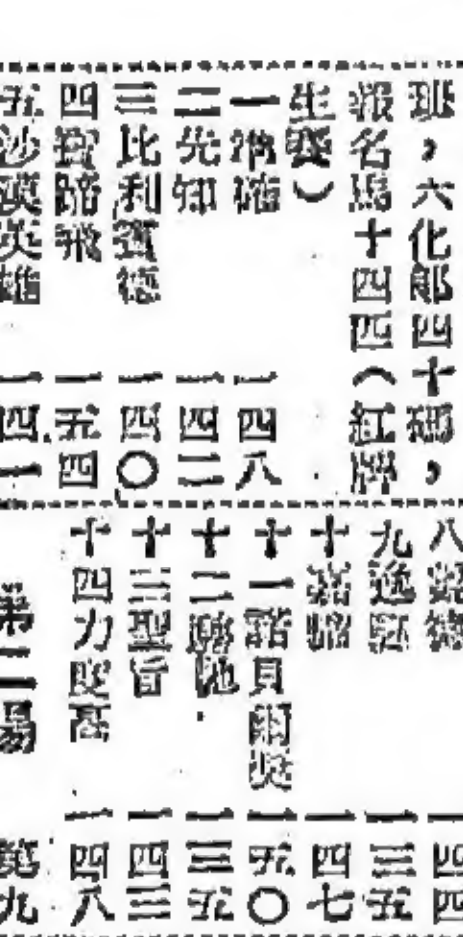 班，六化郎四十碼，
報名馬十四匹（紅牌
生賽）
一準確 一四八
二先知 一四二
三比利賓德 一四〇
四寶蹄飛 一五四
五沙漠英雄 一四一
八 德 一四四
九逸 一三五
十 一四七
十一諧貝 一五〇
十二 馳 一三五
十三聖旨 一四三
十四力度高 一四八
第二場 第九